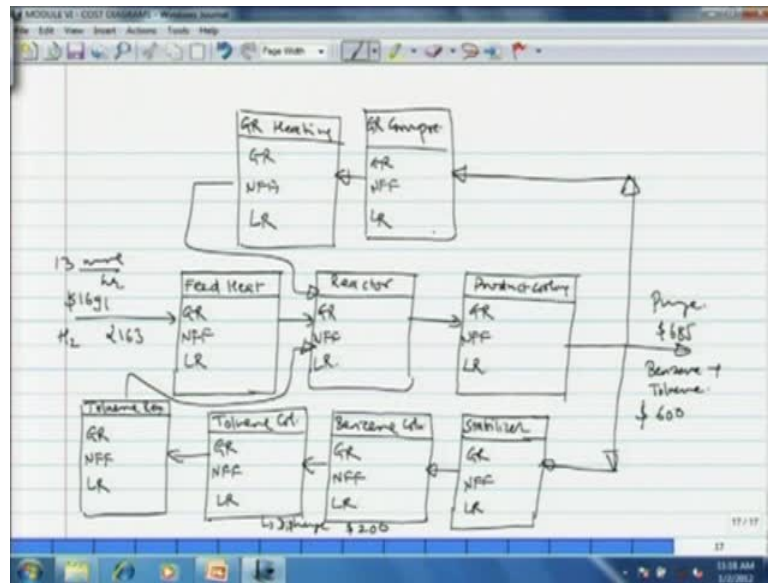 MODULE VI - COST DIAGRAMS - Windows Journal
File Edit View Insert Actions Tools Help
Page Width
GR Heating
GR
NFF
LR
GR Compre
GR
NFF
LR
13
hr
$1691
H2 2163
Feed Heat
GR
NFF
LR
Reactor
GR
NFF
LR
Product Cooling
GR
NFF
LR
Purge
$685
Benzene +
Toluene
$ 600
Toluene
GR
NFF
LR
Toluene Col.
GR
NFF
LR
Benzene Col.
GR
NFF
LR
Stabilizer
GR
NFF
LR
$200
17/17
17
11:18 AM
1/2/2012